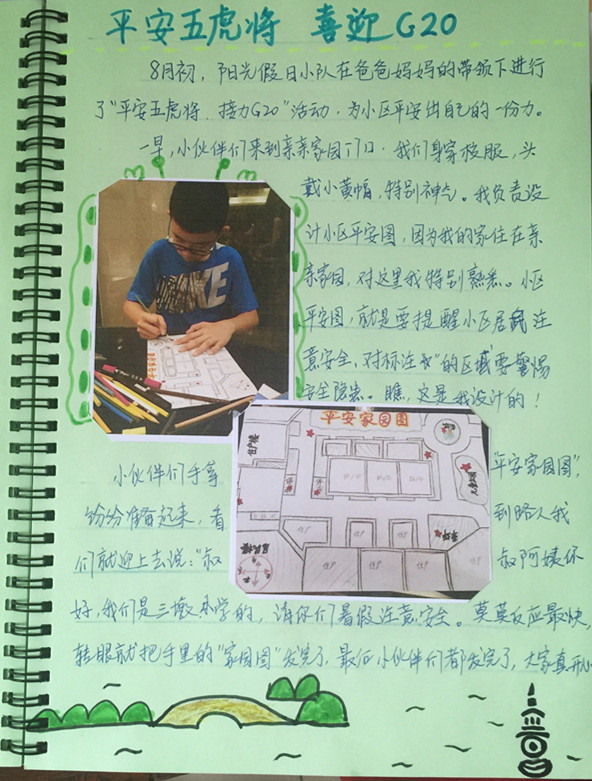 平安五虎将 喜迎G20
8月初，阳光假日小队在爸爸妈妈的带领下进行
了"平安五虎将，接力G20"活动，为小区平安出自己的一份力。
一早，小伙伴们来到亲亲家园门口．我们身穿校服，头
戴小黄帽，特别神气。我负责设
计小区平安图，因为我的家住在亲
亲家园，对这里我特别熟悉。小区
平安图，就是要提醒小区居民注
意安全，对标注"☆"的区域要警惕
安全隐患。瞧，这是我设计的！
平安家园图
住户楼
小伙伴们手拿
"平安家园图"，
纷纷准备起来，看
到路人我
们就迎上去说："叔
叔阿姨你
好，我们是三墩小学的，请你们暑假注意安全。莫莫反应最快，
转眼就把手里的"家园图"发完了，最后小伙伴们都发完了，大家真开心